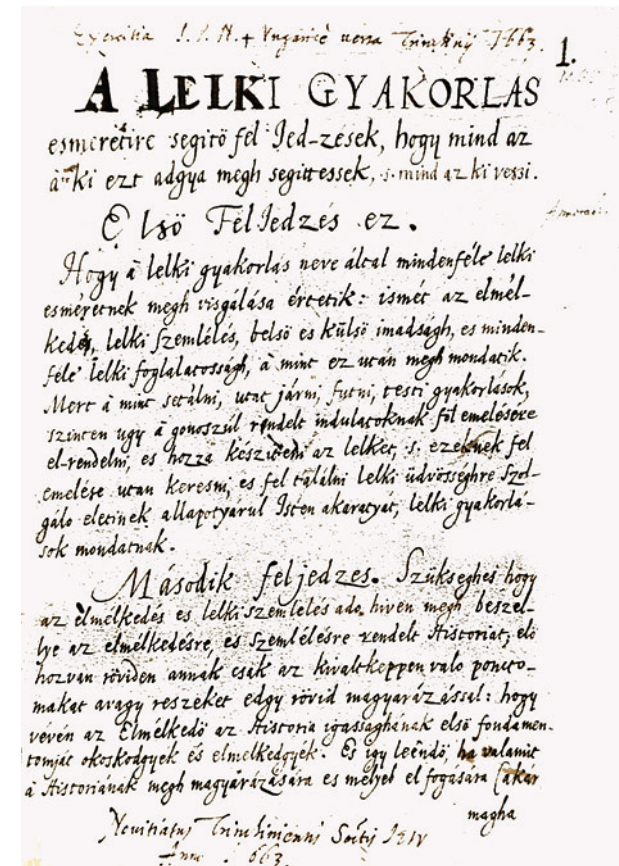 Exercitia S. I. N. + Vngaricè versa Trinchinij 1663.
1.
A LELKI GYAKORLAS
esmeretire segitö fel Jed-zések, hogy mind az
à ki ezt adgya megh segittessek, s. mind az ki veszi.
Elsö Fel Jedzés ez.
Hogy à lelki gyakorlas neve által mindenféle lelki
esméretnek megh visgálása értetik: ismét az elmél-
kedés, lelki szemlélés, belsö es külsö imadságh, es minden-
féle lelki foglalatosságh, à mint ez után megh mondatik.
Mert à mint sétálni, utat járni, futni, testi gyakorlások,
szinten ugy à gonoszúl rendelt indulatoknak föl emelésére
el-rendelni, es hozza készitteni az lelket, s. ezeknek fel
emelése utan keresni, es fel találni lelki üdvösséghre szol-
gáló eletinek allapotyarul Isten akaratyát, lelki gyakorlá-
sok mondatnak.
Második feljedzes. Szükséghes hogy
az elmélkedés es lelki szemlélés ado hiven megh beszél-
lye az elmélkedésre, es szemlélésre rendelt Historiat, elö
hozván röviden annak csak az kivaltkeppen való poncto-
makat avagy reszeket edgy rövid magyarázással: hogy
vévén az Elmélkedö az Historia igassághának elsö fondamen-
tomját okoskodgyek és elmelkedgyék. És igy leendö, ha valamit
à Historiának megh magyárázására es mélyeb el fogására (akár
magha
Novitiatus Trinchiniensis Soctis Jesu
Anno 1663.